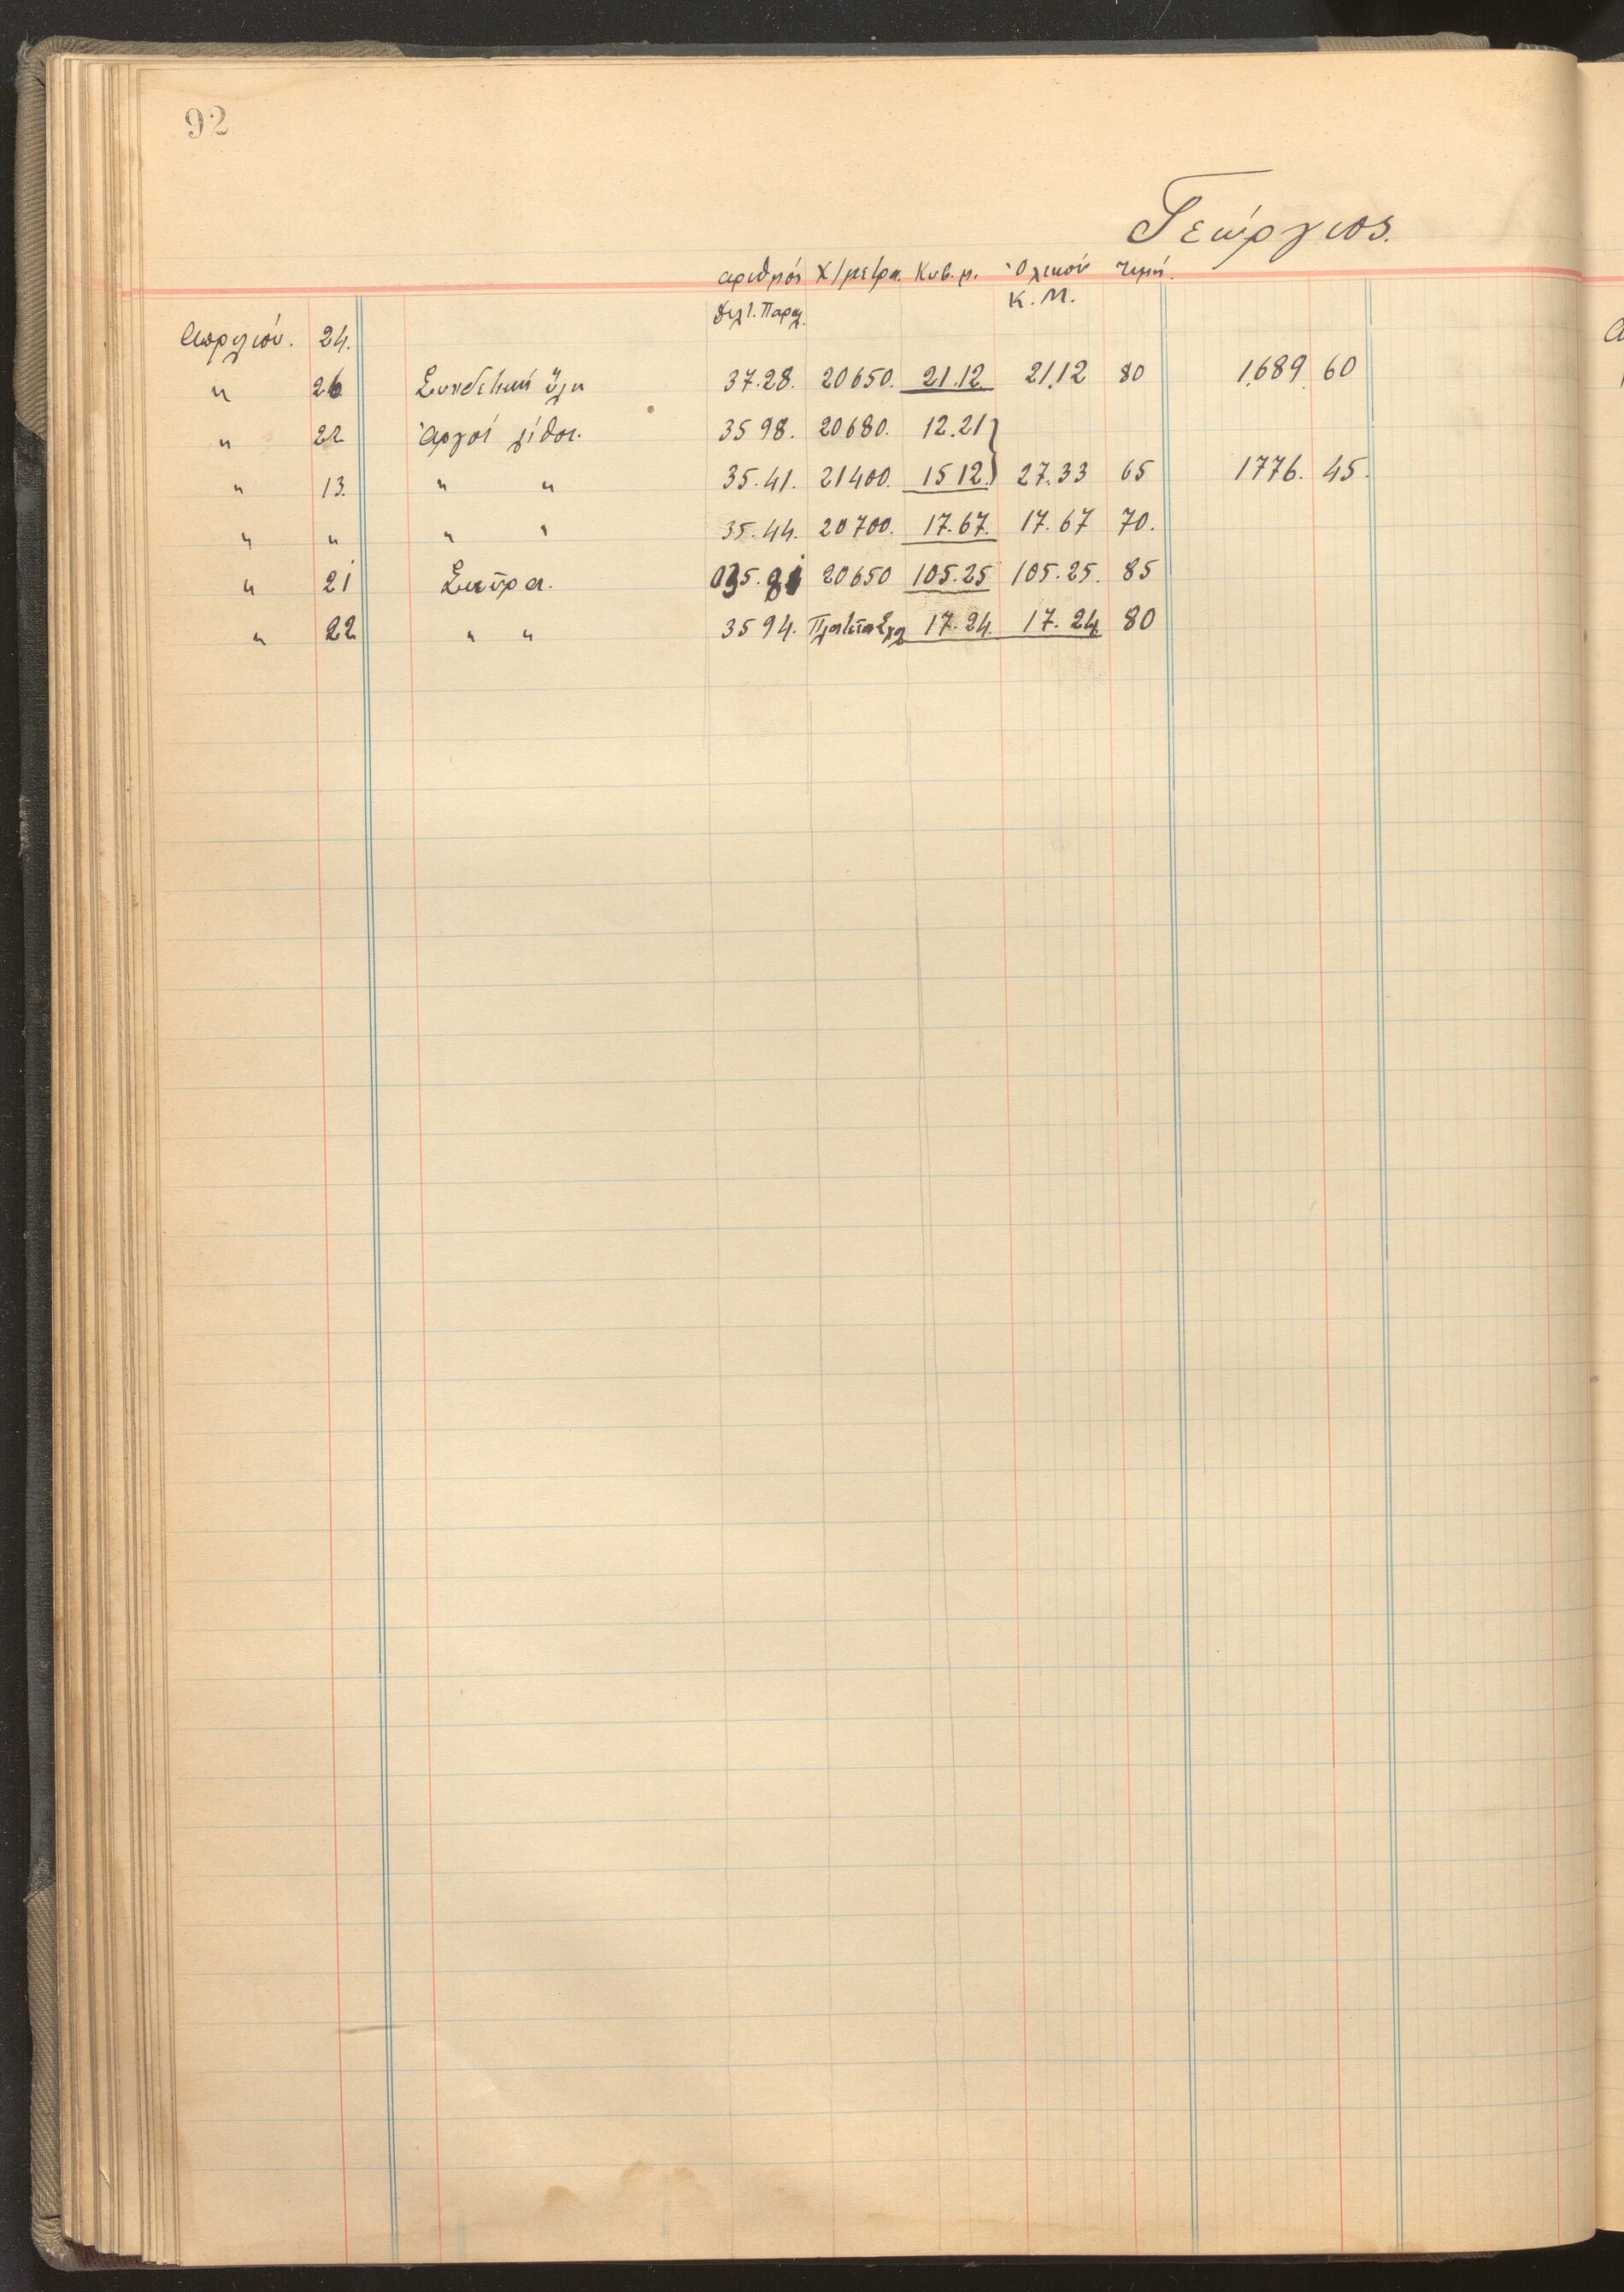 92
Γεώργιος.
αριθμός Χ/μετρα. Κυβ. μ. Ὁλικόν τιμή.
δελτ. Παραλ. Κ. Μ.
Απριλίου. 24.
" 26 Συνδετική ὕλη 37.28. 20650. 21.12 21,12 80 1,689 60
" 22 Ἀργοί λίθοι. 35 98. 20680. 12.21}
" 13. " " 35.41. 21400. 15 12.} 27.33 65 1776. 45.
" " " " 35.44. 20700. 17.67. 17.67 70.
" 21 Σκῦρα. 20650 105.25 105.25. 85
" 22 " " 35 94. 17.24. 17.24 80